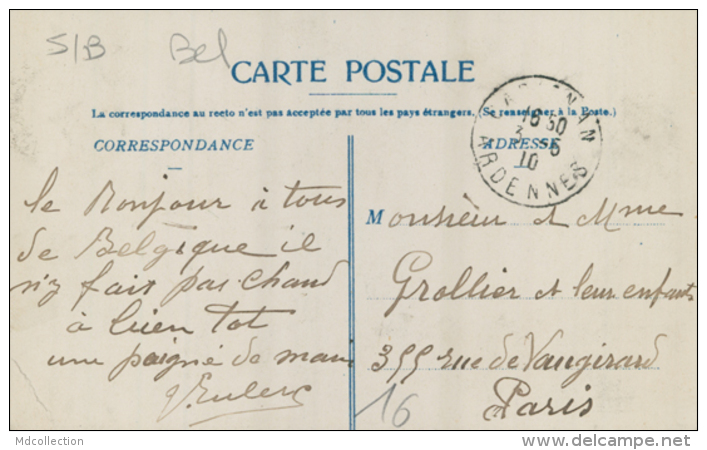 S/B Bel
CARTE POSTALE
La correspondance au recto n'est pas acceptée par tous les pays étrangers. (Se renseigner à la Poste.)
CORRESPONDANCE
ADRESSE
CARIGNAN
16 50
3 - 5
10
ARDENNES
le Bonjour à tous
de Belgique il
n'iz fait pas chaud
à bien tot
une poigné de main
Monsieur et Mme
Grollier et leur enfants
355 rue de Vaugirard
Paris
16
Mdcollection
www.delcampe.net